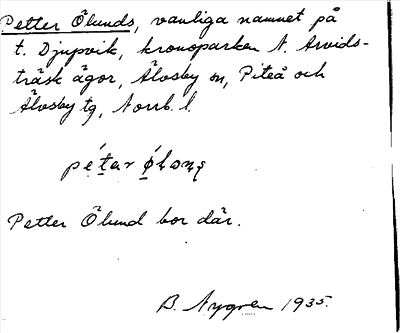 Petter Ölunds, vanliga namnet på
t. Djupvik, kronoparken N. Arvids-
träsk ägor, Älvsby sn, Piteå och
Älvsby tg, Norrb. l.
Petter Ölund bor där.
B. Nygren 1935.